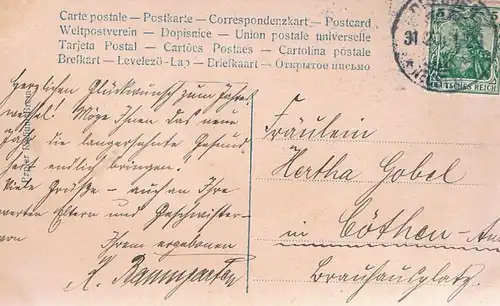 Carte postale — Postkarte — Correspondenzkart — Postcard
Weltpostverein — Dopisnice — Union postale universelle
Tarjeta Postal — Cartões Postaes — Cartolina postale
Brefkart — Levelező-Lap — Briefkaart — Открытое письмо
31
DEUTSCHES REICH
Herzlichen Glückwunsch zum Jahres
wechsel! Möge Ihnen das neue
Jahr die langersehnte Gesund
heit endlich bringen.
Viele Grüße — auch an Ihre
werten Eltern und Geschwister —
von
Ihrem ergebenen
K. Baumgarten
Fräulein
Hertha Gobel
in Cöthen-An
Brauhausplatz.